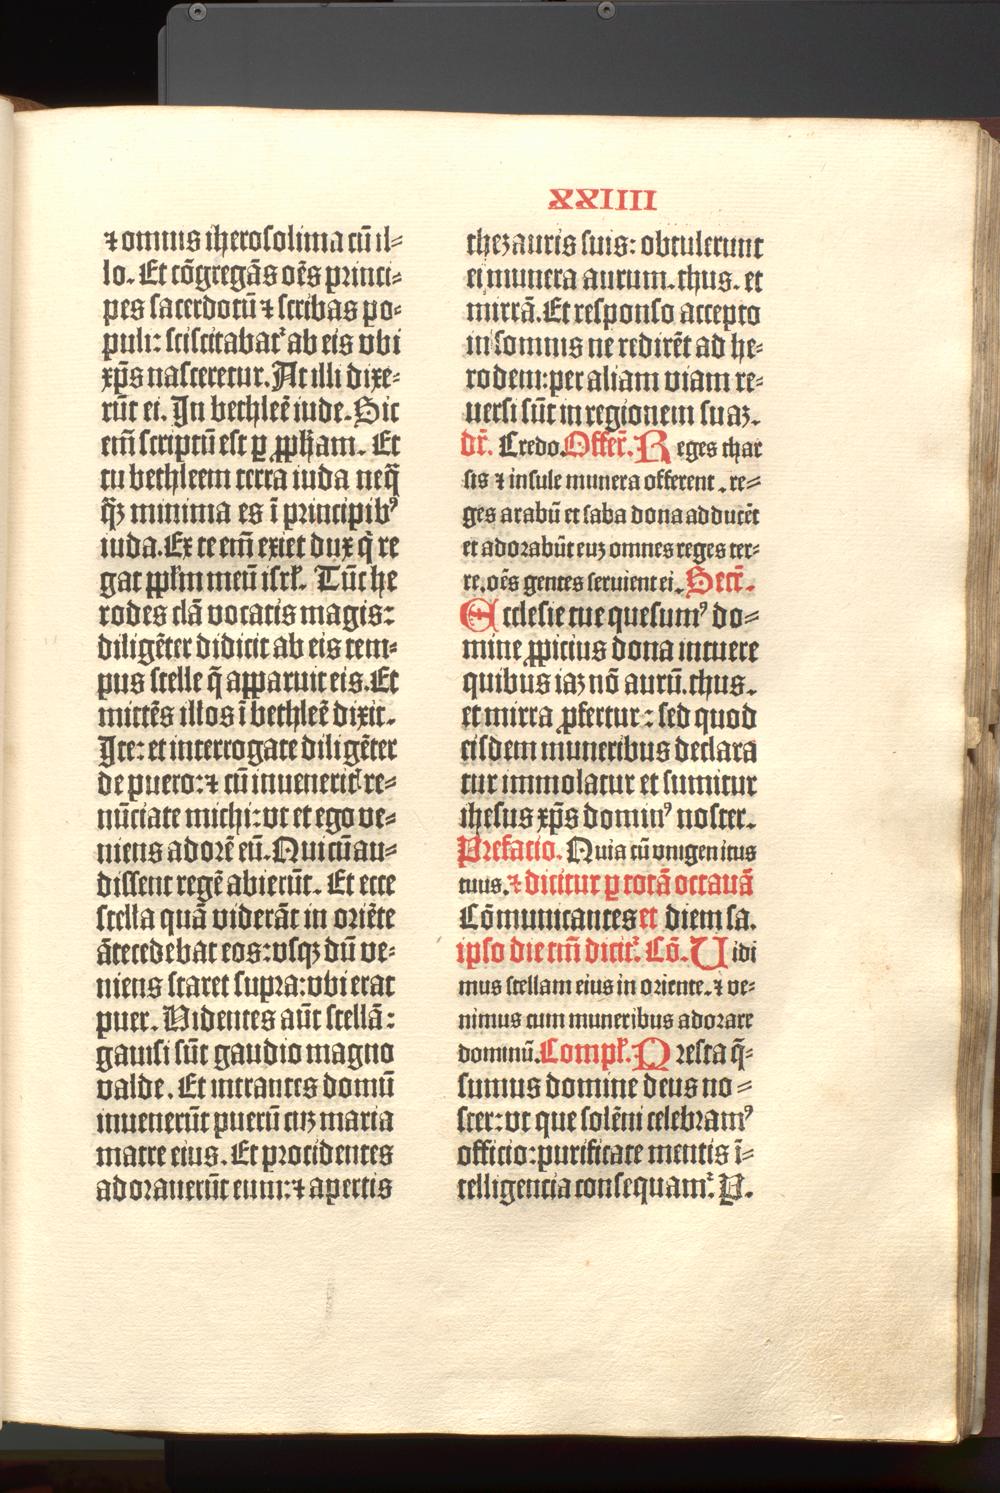 XXIIII
⁊ omnis iherosolima cū il⸗
lo. Et cōgregās oēs princi⸗
pes sacerdotū ⁊ scribas po⸗
puli: sciscitabat᷑ ab eis vbi
xp̄s nasceretur. At illi dixe⸗
rūt ei. In bethleē iude. Sic
em̄ scriptū est ꝑ ꝓph̄am. Et
tu bethleem terra iuda neq̄
q̄ꝫ minima es ī principibꝰ
iuda. Ex te em̄ exiet dux q̇ re
gat ꝓpl̄m meū isrl̄. Tūc he
rodes clā vocatis magis:
diligēter didicit ab eis tem⸗
pus stelle q̄ aꝑparuit eis. Et
mittēs illos ī bethleē dixit.
Ite: et interrogate diligēter
de puero: ⁊ cū inueneritꝭ re⸗
nūciate michi: vt et ego ve⸗
niens adorē eū. Qui cū au⸗
dissent regē abierūt. Et ecce
stella quā viderāt in oriēte
ātecedebat eos: vsqꝫ dū ve⸗
niens staret supra: vbi erat
puer. Videntes aūt stellā:
gauisi sūt gaudio magno
valde. Et intrantes domū
inuenerūt puerū cuꝫ maria
matre eius. Et procidentes
adorauerūt eum: ⁊ apertis
thezauris suis: obtulerunt
ei munera aurum. thus. et
mirrā. Et responso accepto
in somnis ne redirēt ad he⸗
rodem: per aliam viam re⸗
uersi sūt in regionem suaꝫ.
dr̄. Credo. Offer̄. Reges thar
sis ⁊ insule munera offerent. re⸗
ges arabū et saba dona adducēt
et adorabūt euꝫ omnes reges ter⸗
re. oēs gentes seruient ei. Secr̄.
Ecclesie tue quesumꝰ do⸗
mine ꝓpicius dona intuere
quibus iaꝫ nō aurū. thus.
et mirra ꝓfertur: sed quod
eisdem muneribus declara
tur immolatur et sumitur
ihesus xp̄s dominꝰ noster.
Prefatio. Quia cū vnigenitus
tuus. ⁊ dicitur ꝑ totā octauā
Cōmunicantes et diem sa.
ipso die tm̄ dicit᷑. Cō. Uidi
mus stellam eius in oriente. ⁊ ve⸗
nimus cum muneribus adorare
dominū. Compl̄. Presta q̄⸗
sumus domine deus no⸗
ster: vt que solēni celebramꝰ
officio: purificate mentis ī⸗
telligencia consequam᷑. P.